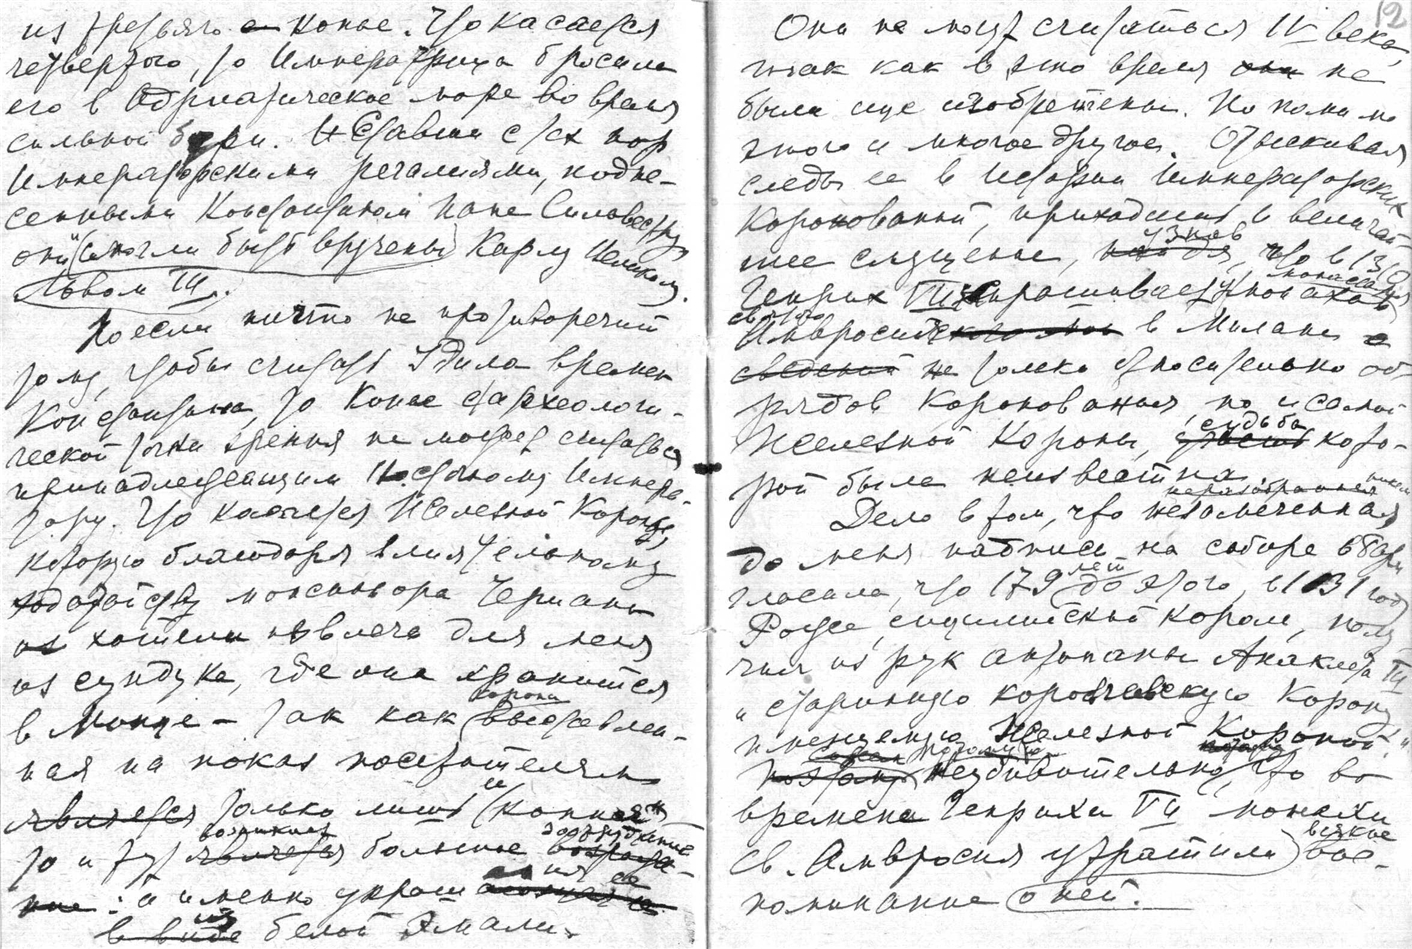 из третьяго копье. Что касается
четвертого, то Императрица бросила
его в Адриатическое море во время
сильной бури. И ставши с тех пор
Императорскими регалиями, подне-
сенными Константином Папе Сильвестру
они могли быть вручены Карлу Великому
Львом III.
Но если ничто не противоречит
тому, чтобы считать Удила времен
Константина, то Копье с археологи-
ческой точки зрения не может считаться
принадлежащим Импера-
тору. Что касается Железной Короны,
которую благодаря влиятельному
ходатайству монсиньора Чериани
хотели извлечь для меня
из сундука, где она хранится
в Монце – так как корона выставлен-
ная на показ посетителям
является только лишь копией
то и тут возникает большое
: а именно украшения ее
из белой Эмали.
12
Они не могут считаться IV века,
так как в это время они не
были еще изобретены. Но помимо
этого и многое другое. Отыскивая
следы ее в Истории Императорских
Коронований, приходишь в величай-
шее смущение, узнав, что в 13
Генрих VII спрашивает у монахов
святого Амвросия в Милане
сведений не только относительно об-
рядов Коронования, но и самой
Железной Короны, судьба кото-
рой была неизвестна.
Дело в том, что незамеченная
до меня надпись на соборе в Бари
гласила, что 179 лет до этого, в 1131 году
Рожер, сицилийский король, полу-
чил из рук антипапы Анаклета
"старинную королевскую Корону
именуемую Железной Короной."
неудивительно, что во
времена Генриха VII монахи
св. Амвросия утратили всякое вос-
поминание о ней.